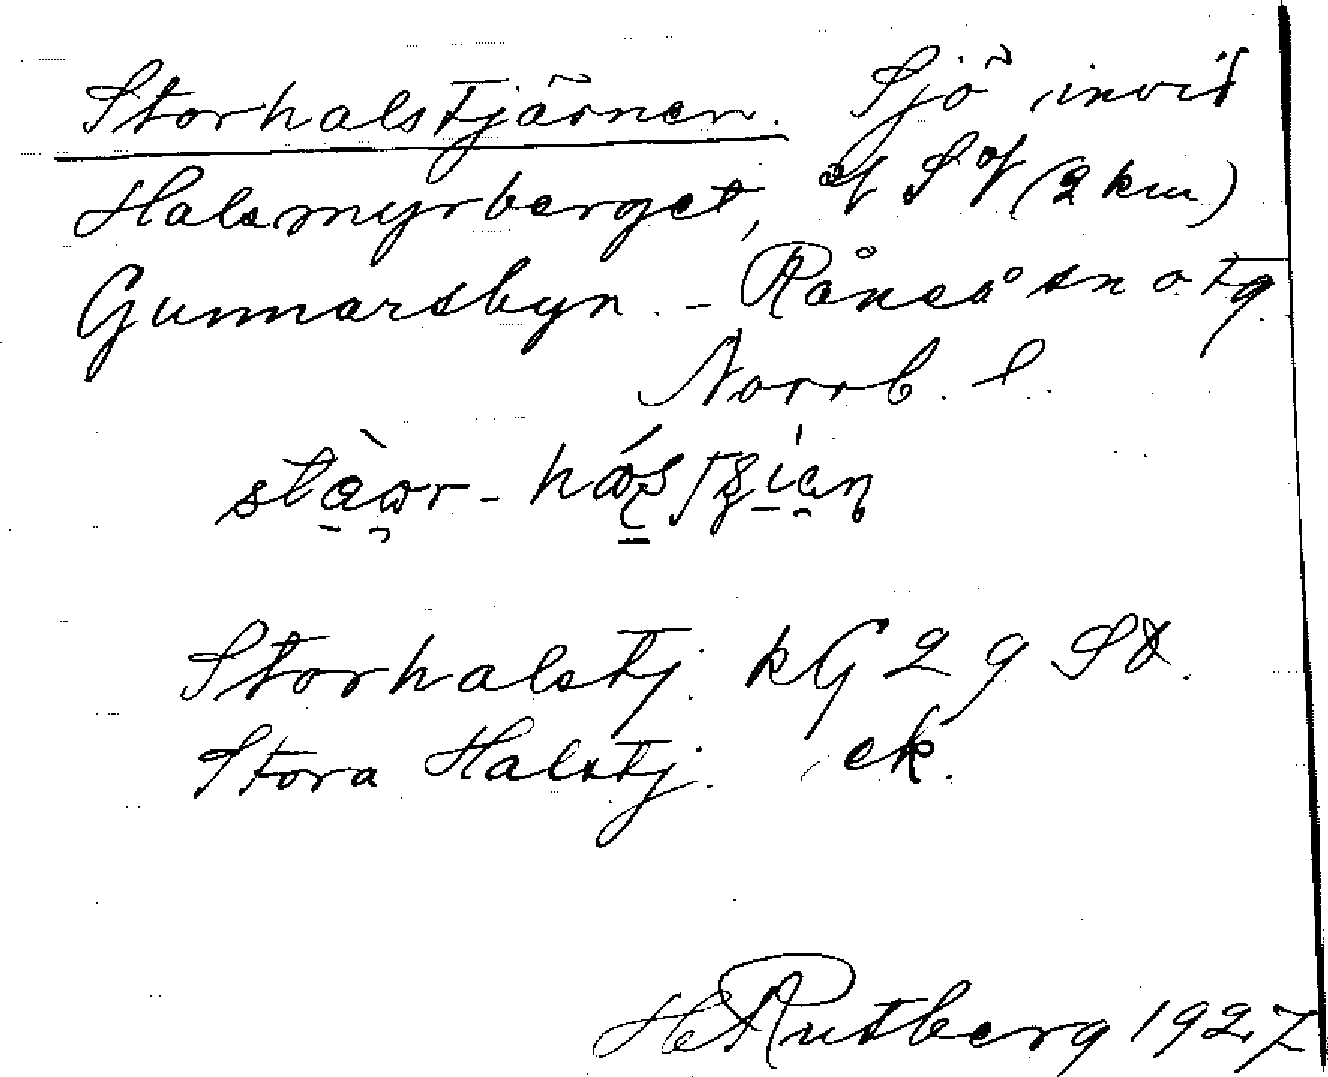 Storhalstjärnen. Sjö invid
Halsmyrberget, (2 km)
Gunnarsbyn. - Råneå sn o tg
Norrb. l.
Storhalstj. kG 29 SO.
Stora Halstj. ek.
H Rutberg 1927